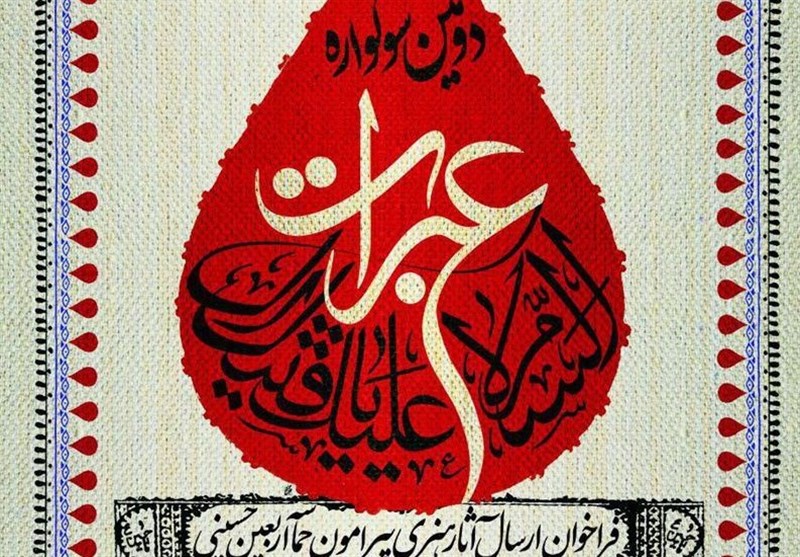 دومین سوگواره
عبرات
السّلام علیک یا قتیل
فراخوان ارسال آثار هنری پیرامون حماسه اربعین حسینی